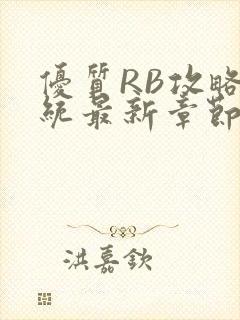 優質RB攻略
統最新章節
洪嘉欽